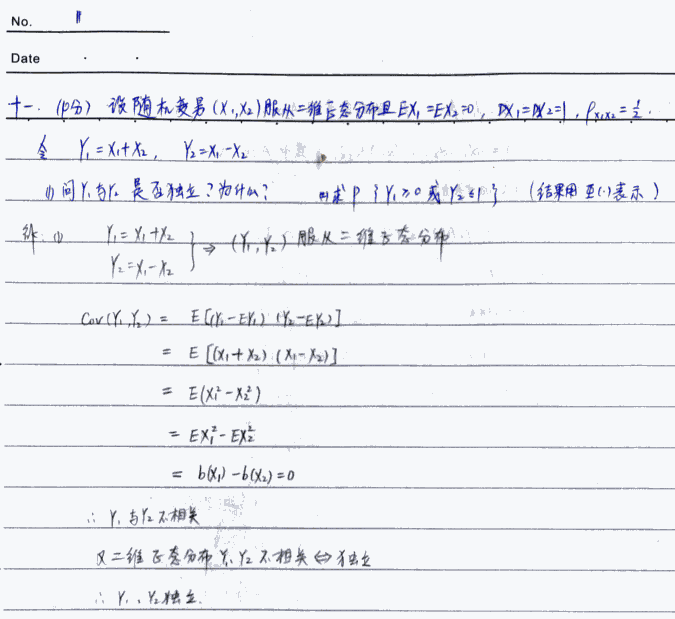 No. 11
Date · ·
十一. (10分) 设随机变量(X₁,X₂)服从二维正态分布且EX₁=EX₂=0, DX₁=DX₂=1, ρX₁X₂=1/2.
令 Y₁=X₁+X₂, Y₂=X₁-X₂
(1) 问Y₁与Y₂是否独立?为什么? (2)求P{Y₁≥0或Y₂≤1} (结果用Φ(·)表示)
解: (1) Y₁=X₁+X₂
Y₂=X₁-X₂ } ⇒ (Y₁,Y₂)服从二维正态分布
Cov(Y₁,Y₂) = E[(Y₁-EY₁)(Y₂-EY₂)]
= E[(X₁+X₂)(X₁-X₂)]
= E(X₁²-X₂²)
= EX₁²-EX₂²
= D(X₁)-D(X₂)=0
∴ Y₁与Y₂不相关
又二维正态分布Y₁、Y₂不相关⇔独立
∴ Y₁、Y₂独立.